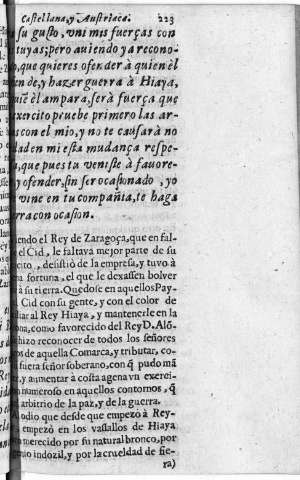 Castellana, y Austriaca. 223
a su gusto, vni mis fuerças con
tuyas; pero auiendo ya recono-
o, que quieres ofender à quien èl
ende, y hazer guerra à Hiaya,
uiẽ èl ampara, serà fuerça que
exercito pruebe primero las ar-
s con el mio, y no te causarà no
dad en mi esta mudança respe-
a, que pues tu veniste à favore-
y ofender, sin ser ocasionado, yo
vine en tu compañia, te haga
rra con ocasion.
iendo el Rey de Zaragoça, que en fal-
el Cid, le faltava mejor parte de su
cito, desistiò de la empresa, y tuvo à
na fortuna, el que le dexassen bolver
à su tierra. Quedose en aquellos Pay-
Cid con su gente, y con el color de
iliar al Rey Hiaya, y mantenerle en la
ona, como favorecido del Rey D. Alõ-
hizo reconocer de todos los señores
os de aquella Comarca, y tributar, co-
fuera señor soberano, con q̃ pudo mã
er, y aumentar à costa agena vn exerci-
numeroso en aquellos contornos, q̃
arbitrio de la paz, y de la guerra.
odio que desde que empezò à Rey-
empezò en los vassallos de Hiaya
merecido por su natural bronco, por
nio indozil, y por la crueldad de fie-
ra)